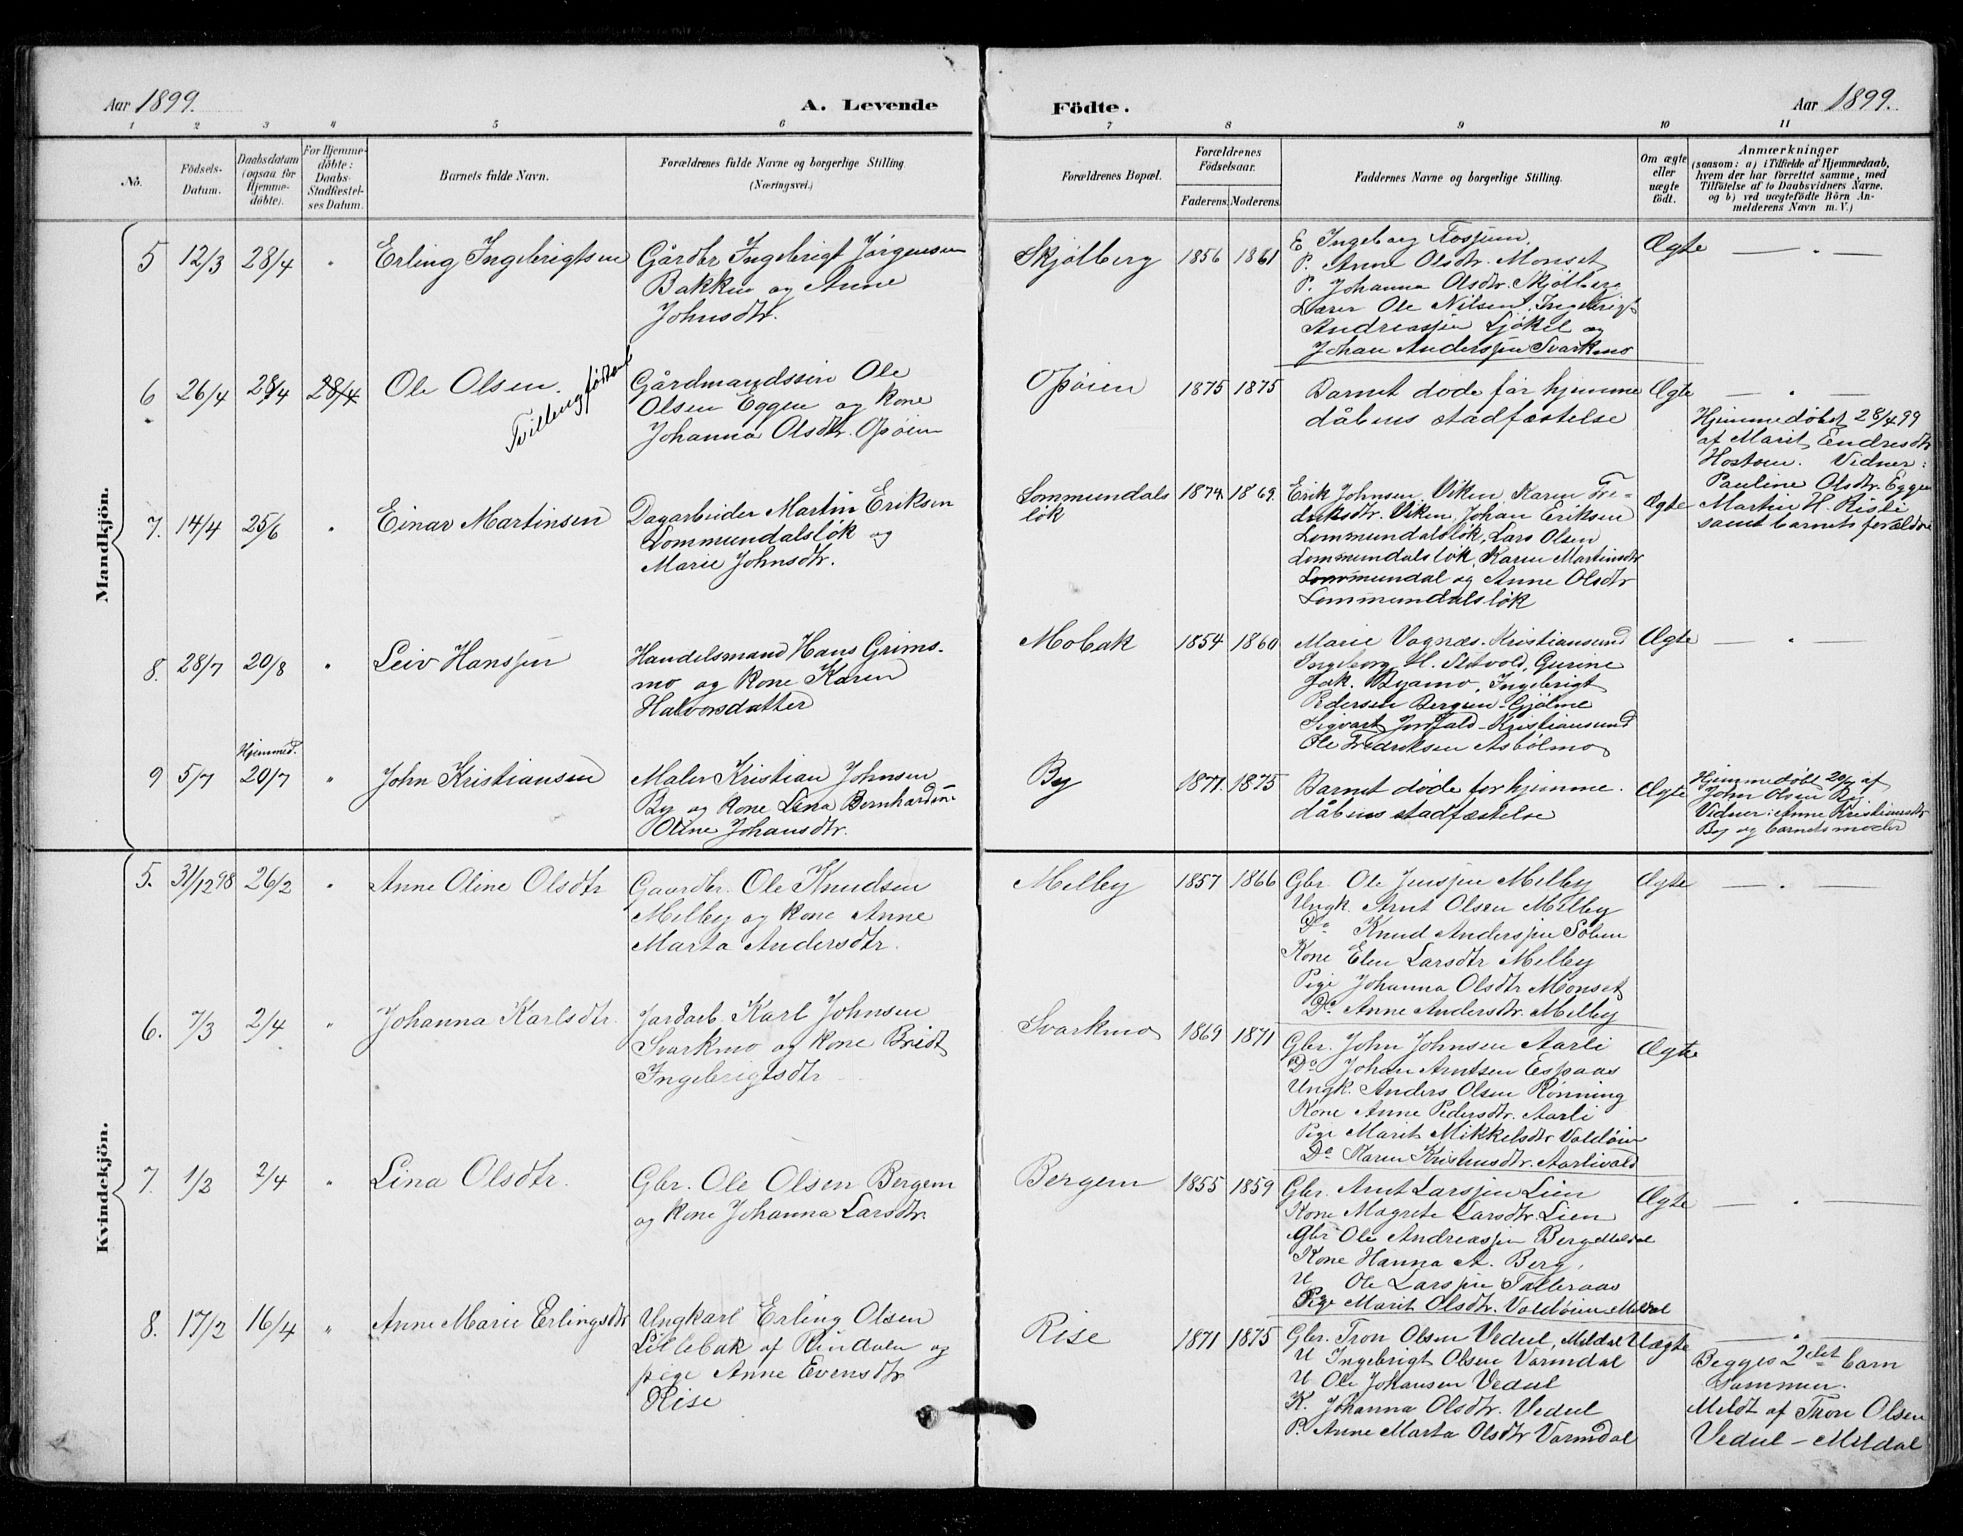 Aar 1899.
A. Levende
Födte.
Aar 1899.
1 2 3 4 5 6 7 8 9 10 11
No.
Födsels-
Datum.
Daabsdatum
(ogsaa for
Hjemme-
döbte).
For Hjemme-
döbte:
Daabs-
Stadfæstel-
ses Datum.
Barnets fulde Navn.
Forældrenes fulde Navne og borgerlige Stilling.
(Næringsvei.)
Forældrenes Bopæl.
Forældrenes
Födselsaar.
Faderens. Moderens.
Faddernes Navne og borgerlige Stilling.
Om ægte
eller
uægte
födt.
Anmærkninger
(saasom: a) i Tilfælde af Hjemmedaab,
hvem der har forrettet samme, med
Tilföielse af to Daabsvidners Navne,
og b) ved uægtefödte Börn An-
melderens Navn m. V.)
Mandkjön.
5 12/3 28/4 "
Erling Ingebrigtsen
Gårdbr Ingebrigt Jørgensen
Bakken og Anne
Johnsdtr.
Skjølberg
1856 1861
E Ingeborg Fossum
P. Anne Olsdtr. Monset
P. Johanna Olsdtr. Skjølberg
Lærer Ole Nilsen, Ingebrigt
Andreassen Sjøkel og
Johan Anderssen Svarkmo
Ægte
— " —
6 26/4 28/4 28/4
Ole Olsen.
Tvillingfødsel
Gårdmandssøn Ole
Olsen Eggen og kone
Johanna Olsdtr. Opøien
Opøien
1875 1875
Barnet døde før hjemme
dåbens stadfæstelse
Ægte
— " —
Hjemmedøbt 28/4 99
af Marit Endresdtr
Hostoen. Vidner:
Pauline Olsdtr. Eggen
Martin H. Risli
samt barnets forældre
7. 14/4 25/6 "
Einar Martinsen
Dagarbeider Martin Eriksen
Lommundalsløk og
Marie Johnsdtr.
Lommundals
løk
1874. 1869.
Erik Johnsen Viken, Karen Fre-
driksdtr. Viken, Johan Eriksen
Lommundalsløk, Lars Olsen
Lommundalsløk, Karen Martinsdtr
Lommundal og Anne Olsdtr
Lommundalsløk
Ægte
8. 28/7 20/8 "
Leiv Hanssen
Handelsmand Hans Grims-
mo og kone Karen
Halvorsdatter
Mobak
1854 1860
Marie Vognæs. Kristiansund
Ingeborg H. Gurine
Jak. Byamo, Ingebrigt
Pedersen Bergum-Gjølme
Sigvart - Kristiansund
Ole Fredriksen Asbølmo
Ægte
— " —
9 5/7 Hjemmed. 20/7 "
John Kristiansen
Maler Kristian Johnsen
By og kone Lina Bernhardine
Oline Johansdtr.
By
1871. 1875
Barnet døde før hjemme.
dåbens stadfæstelse
Ægte
Hjemmedøbt 20/7 af
John Olsen By
Vidner: Anne Kristiansdtr
By og barnets moder
Kvindekjön.
5. 31/12 98 26/2 "
Anne Oline Olsdtr
Gaardbr. Ole Knudsen
Melby og kone Anne
Marta Andersdtr.
Melby
1857 1866
Gbr. Ole Jenssen Melby
Ungk. Arnt Olsen Melby
Do Knud Anderssen Solem
Kone Elen Larsdtr Melby
Pige Johanna Olsdtr Monset
Do Anne Andersdtr. Melby
Ægte
— " —
6. 7/3 2/4 "
Johanna Karlsdtr.
Jordarb. Karl Johnsen
Svarkmo og kone Bridt
Ingebrigtsdtr
Svarkmo
1869 1871
Gbr. John Johnsen Aarli
Do Johan Arntsen Espaas
Ungk. Anders Olsen Rønning
Kone Anne Pedersdtr. Aarli
Pige Marit Mikkelsdtr Valdøien
Do Karen Aarlivold
Ægte
7. 1/2 2/4 "
Lina Olsdtr.
Gbr. Ole Olsen Bergem
og kone Johanna Larsdtr.
Bergem
1855 1859
Gbr. Arnt Larssen Lien
Kone Magrete Larsdtr. Lien
Gbr Ole Andreassen Berg Meldal
Kone Hanna A. Berg,
U Ole Larssen Talleraas
Pige Marit Olsdtr. Valdøien Meldal
Ægte
— " —
8. 17/2 16/4 "
Anne Marie Erlingsdtr
Ungkarl Erling Olsen
Lillebak af Rindalen og
pige Anne Evensdtr
Rise
Rise
1871 1875
Gbr. Tron Olsen Vedul, Meldal
U Ingebrigt Olsen Varmdal
U Ole Johansen Vedul
K. Johanna Olsdtr. Vedul
P. Anne Marta Olsdtr Varmdal
Uægte
— " —
Begges 2det barn
sammen.
Meldt af Tron Olsen
Vedul - Meldal